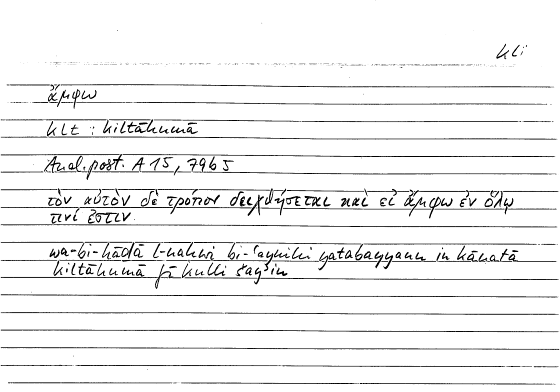 kli
ἄμφω
klt : kiltāhumā
Anal. post. A 15, 79b5
τὸν αὐτὸν δὲ τρόπον δειχθήσεται καὶ εἰ ἄμφω ἐν ὅλῳ
τινί ἐστιν.
wa-bi-hāḏā l-naḥwi bi-ʿaynihi yatabayyanu in kānatā
kiltāhumā fī kulli šayʾin